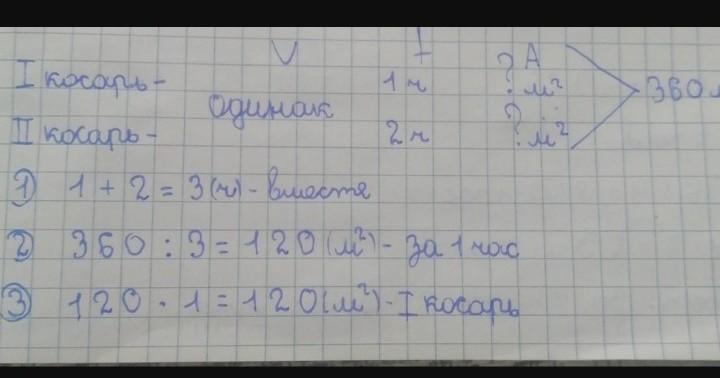 V t A
I косарь- 1ч ? м² 360 м
одинак
II косарь- 2ч ? м²
① 1 + 2 = 3(ч) - вместе
② 360 : 3 = 120(м²) - за 1 час
③ 120 · 1 = 120(м²) - I косарь